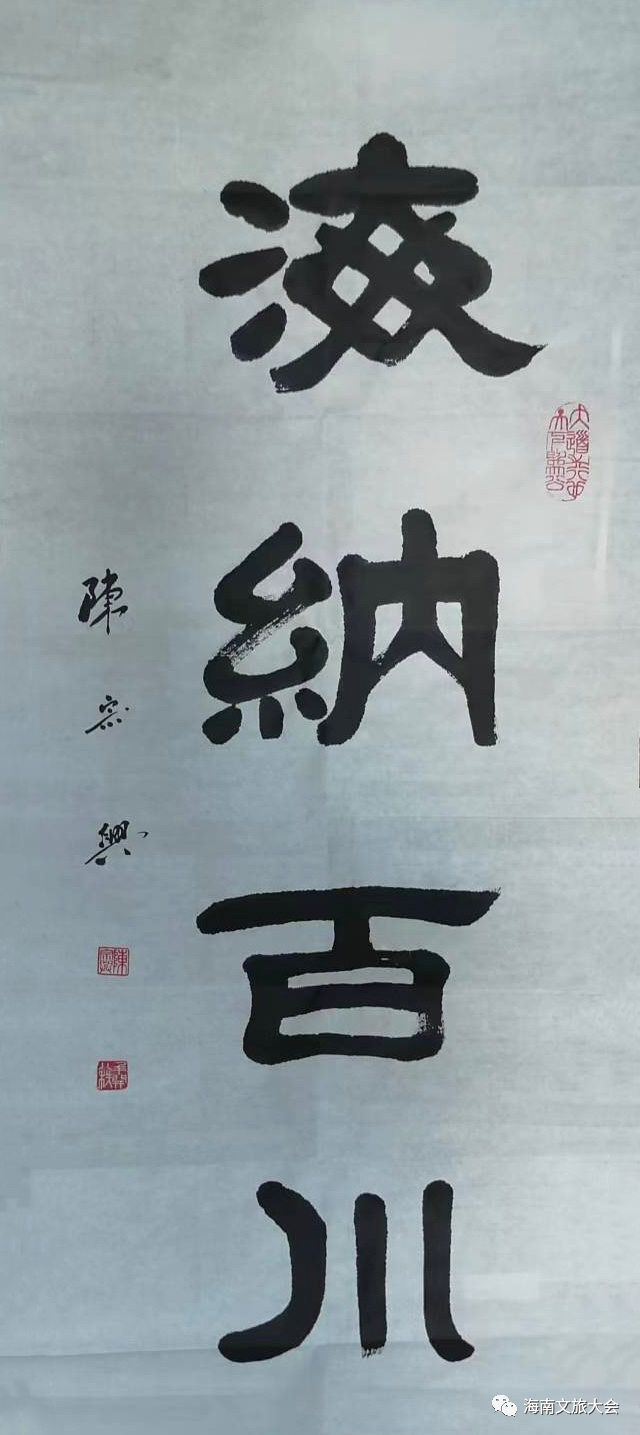 海納百川
陳宗興
海南文旅大会